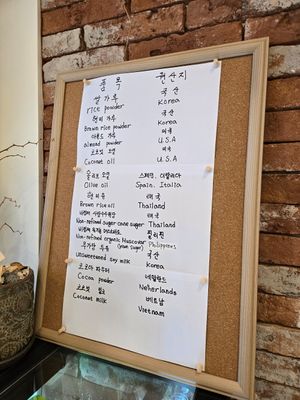 품 목 원산지
쌀가루 국 산
rice powder Korea
현미 가루 국산
Brown rice powder Korea
아몬드 가루 미국
almond powder U.S.A
코코넛 오일 미국
Coconut oil U.S.A
올리브 오일 스페인, 이탈리아
Olive oil Spain, Italia
현미유 태국
Brown rice oil Thailand
비정제 사탕수수원당 태국
Non-refined sugar cane sugar Thailand
비정제 유기농 마스코바도 필리핀
Non-refined organic Muscovado (cane sugar) Philippines
무가당 두유 국산
unsweetened soy milk Korea
코코아 파우더 네덜란드
Cocoa powder Netherlands
코코넛 밀크 베트남
Coconut milk Vietnam